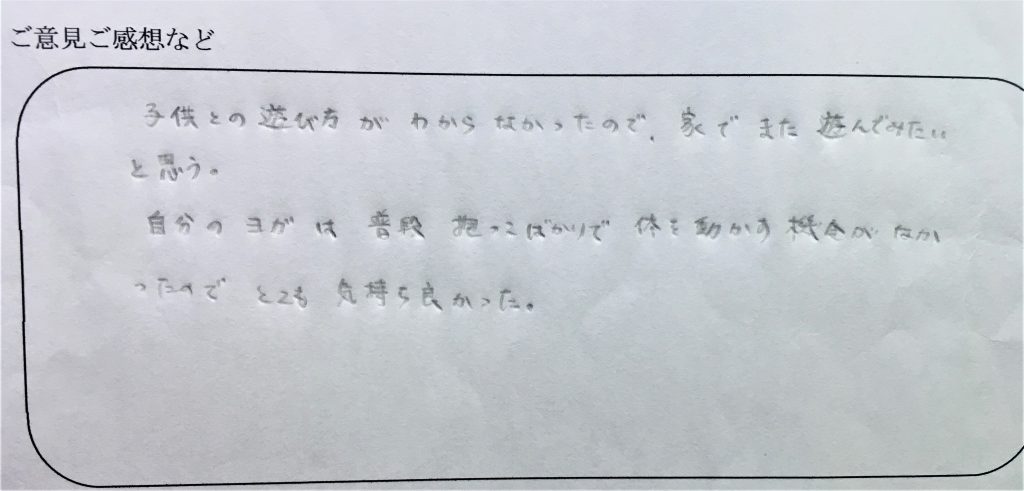 ご意見ご感想など
子供との遊び方がわからなかったので、家でまた遊んでみたい
と思う。
自分のヨガは普段抱っこばかりで体を動かす機会がなか
ったのでとても気持ち良かった。